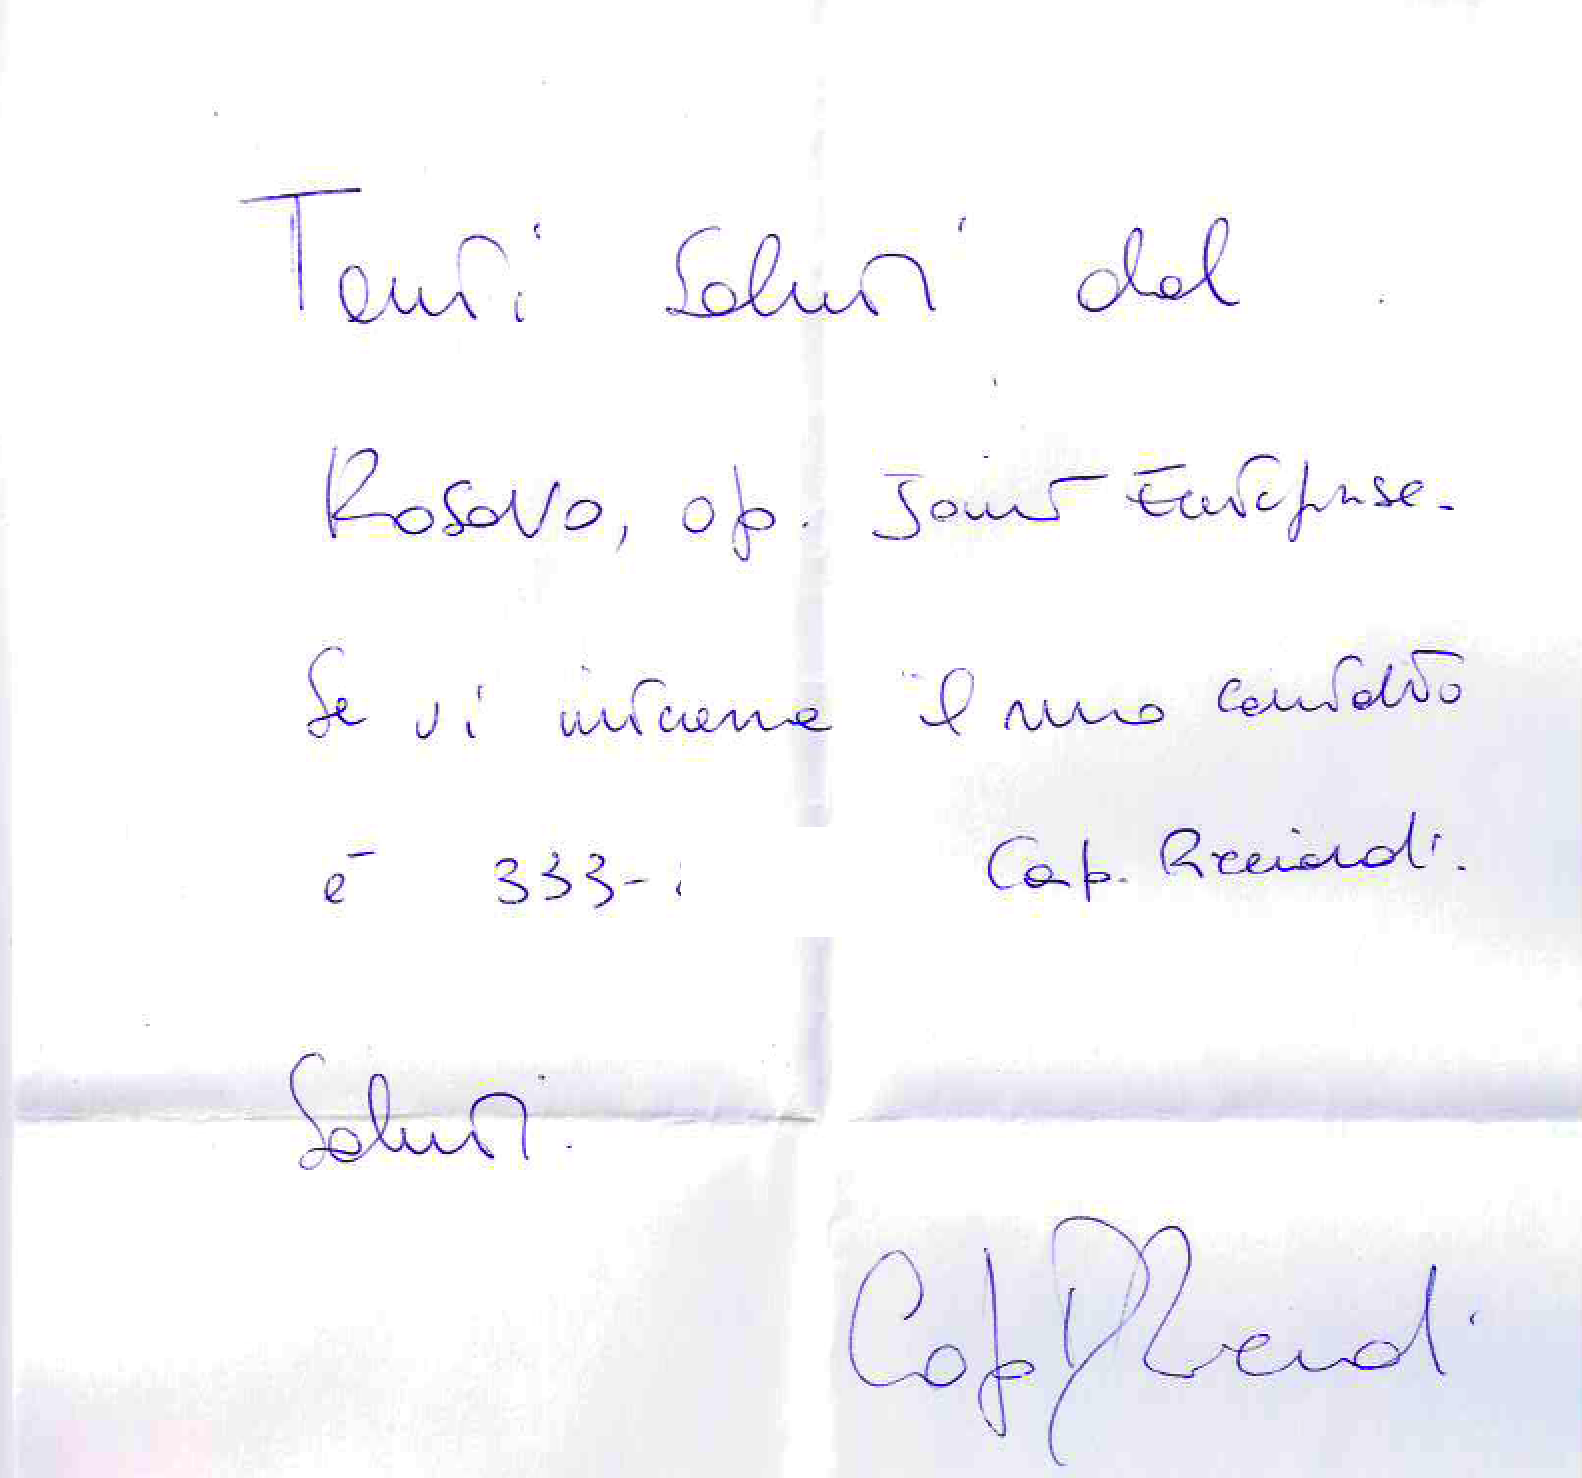 Tanti Saluti dal
Kosovo, op. Joint Enterprise.
Se vi interessa il mio contatto
è 333- Cap. Ricciardi.
Saluti.
Cap